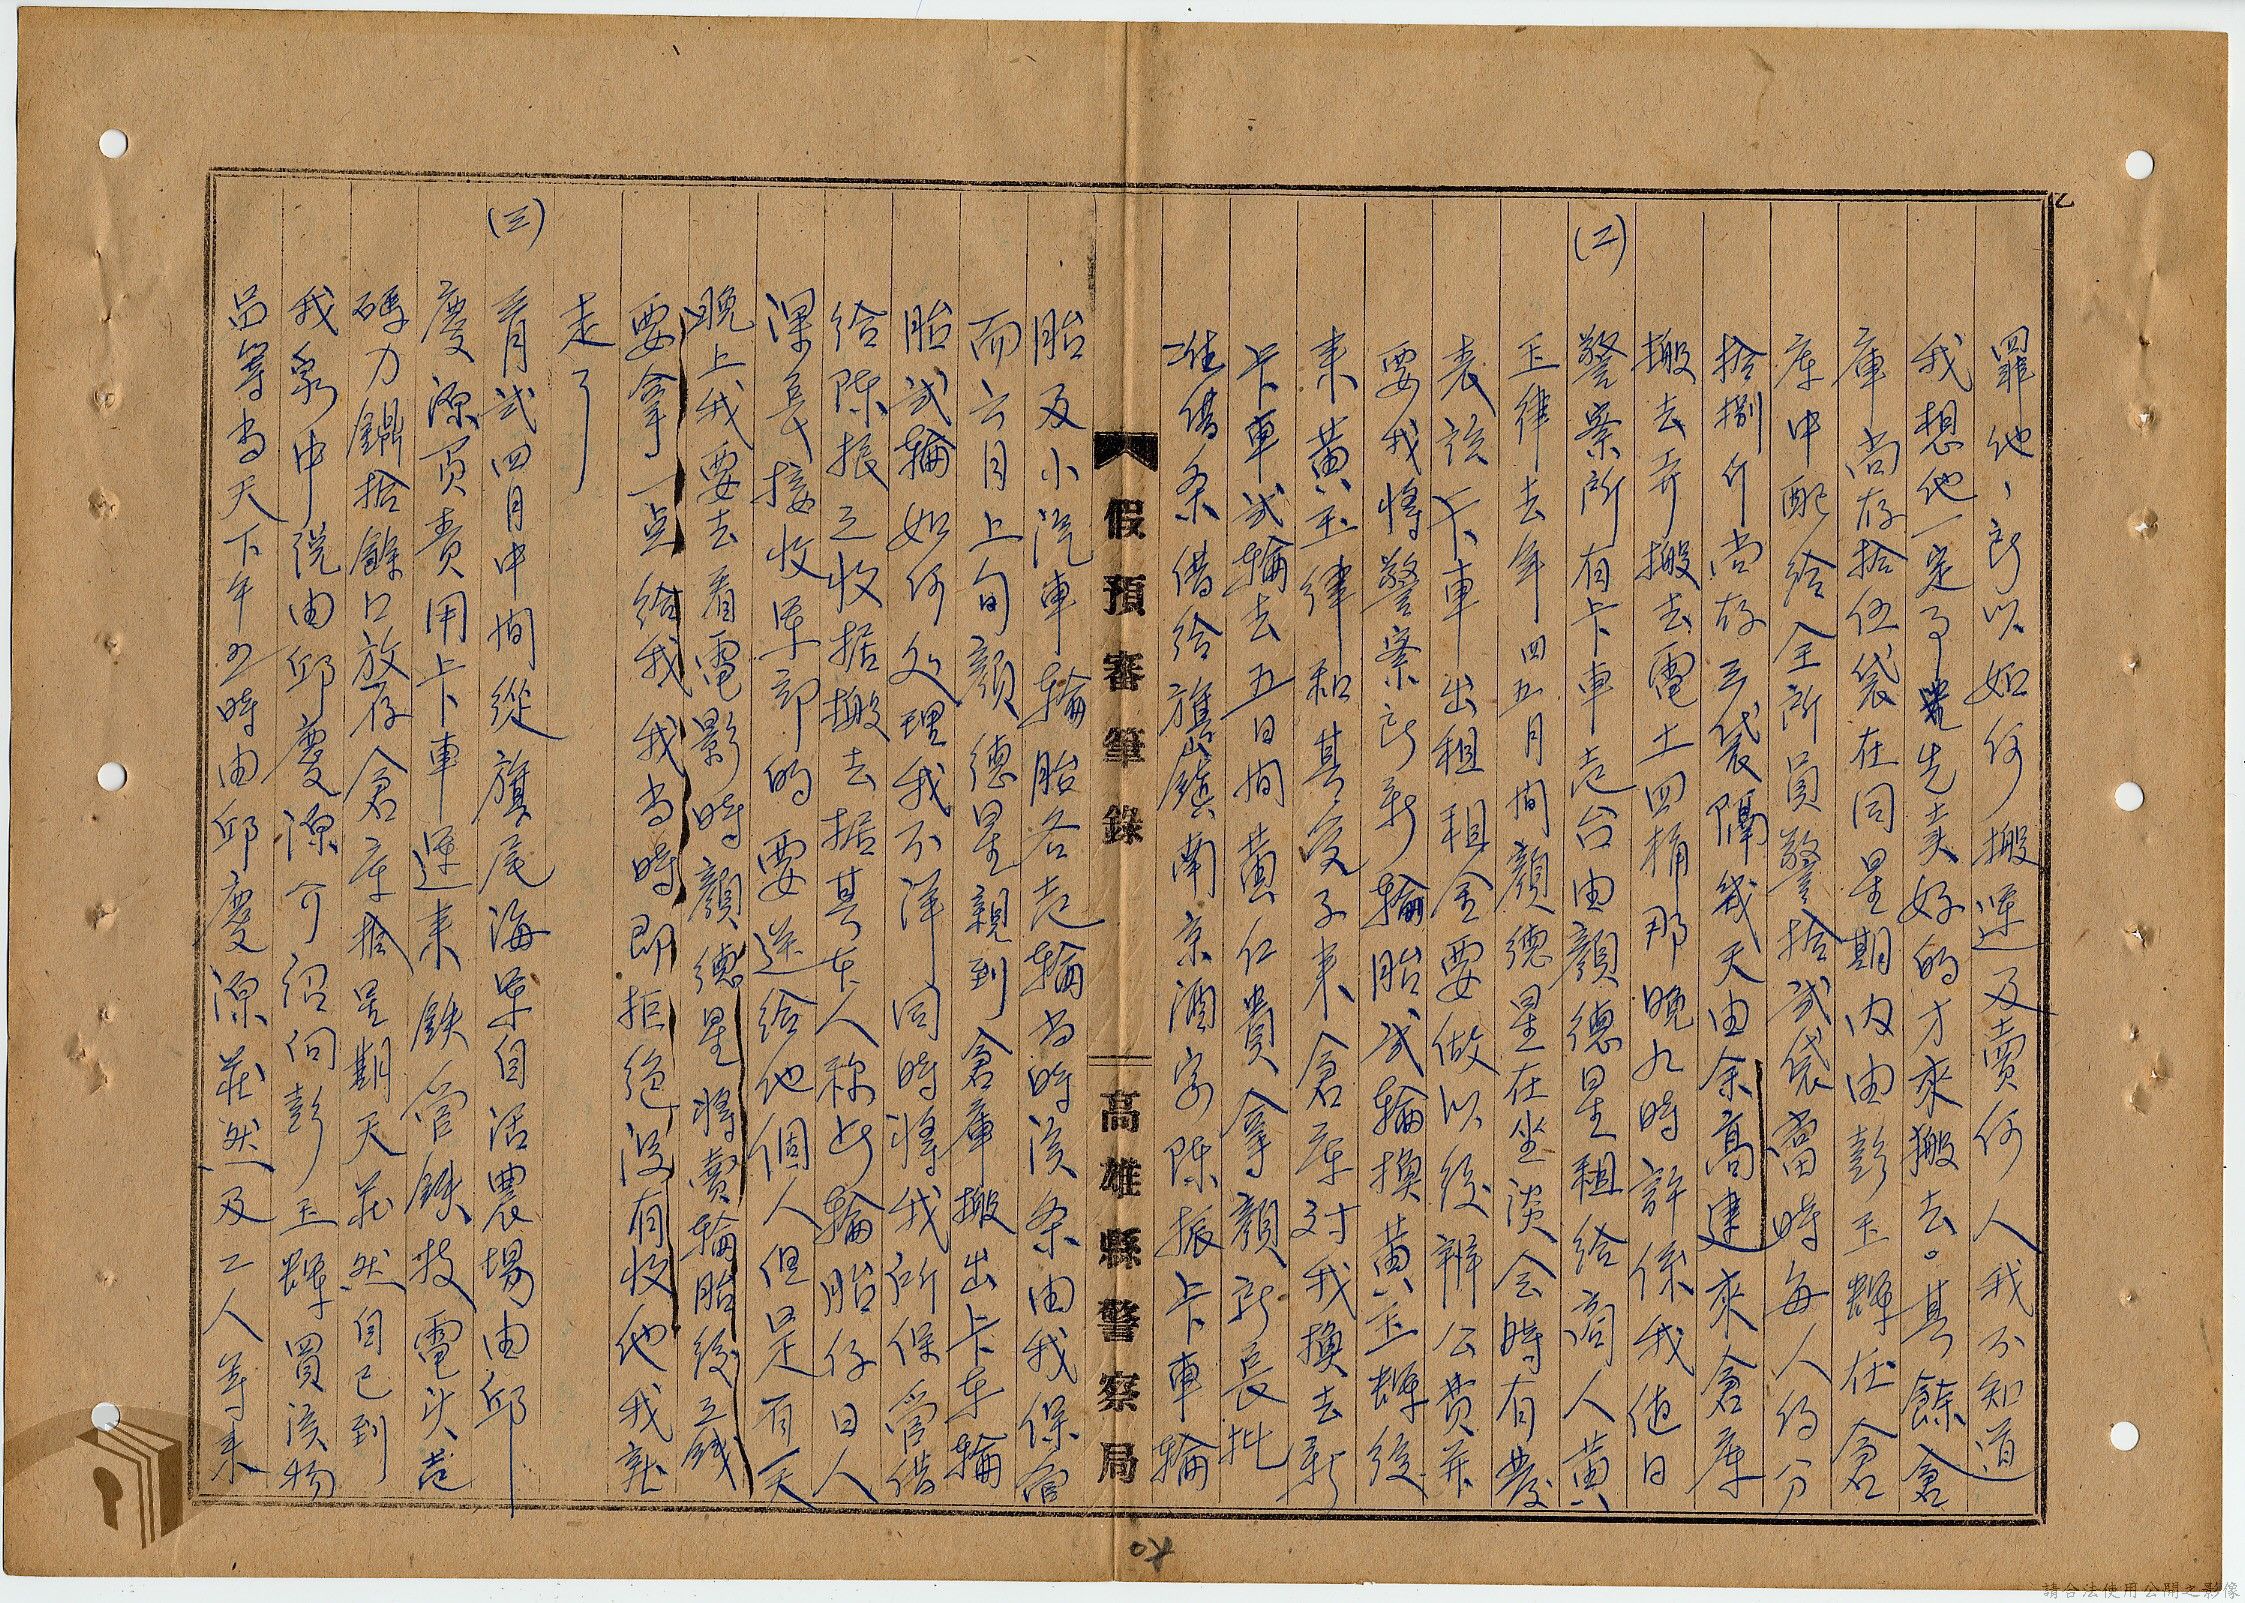 罪他、所以如何搬運及賣何人我不知道
我想他一定了先卖好的才來搬去。其餘倉
庫尚存拾伍袋在同星期内由彭玉輝在倉
库中配给全所員警拾弍袋當時每人的分
拾捌斤尚存三袋隔幾天由余高建來倉库
搬去弄搬去電土四桶那晚九時許係我值日
(二)
警察所有卡車壱台由顏德星租给商人黄
玉律去年四五月間顏德星在坐淡会時有發
表該卡車出租租金要做以後辨公费並
要我将警察所新輪胎弍輪換黄玉輝後
来黄玉律和其父子来倉库対我換去新
卡車弍輪去五日間黄仁貴拿顏所長批
准借条借给旗山鎮南京酒家陈振卡車輪
假預審筆錄
高雄縣警察局
胎及小汽車輪胎各壱輪当時該条由我保管
而六月上旬顏德星親到倉庫搬出卡车輪
胎弍輪如何处理我不洋同時将我所保管借
给陈振之收据搬去据其本人称此輪胎係日人
課長接收军部的要送给他個人但是有一天
晚上我要去看電影時顏德星将賣輪胎後之錢
要拿一点给我我当時即拒绝没有收他我就
走了
(三)
弍四月中間從旗尾海军自活農場由邱
慶源負責用卡車運来鉄管鉄技電火芭
碼力鑼拾餘口放存倉库拾星期天莊然自己到
我家中说由邱慶源介绍向彭玉輝買该物
品等当天下午五時由邱慶源莊然及工人等来